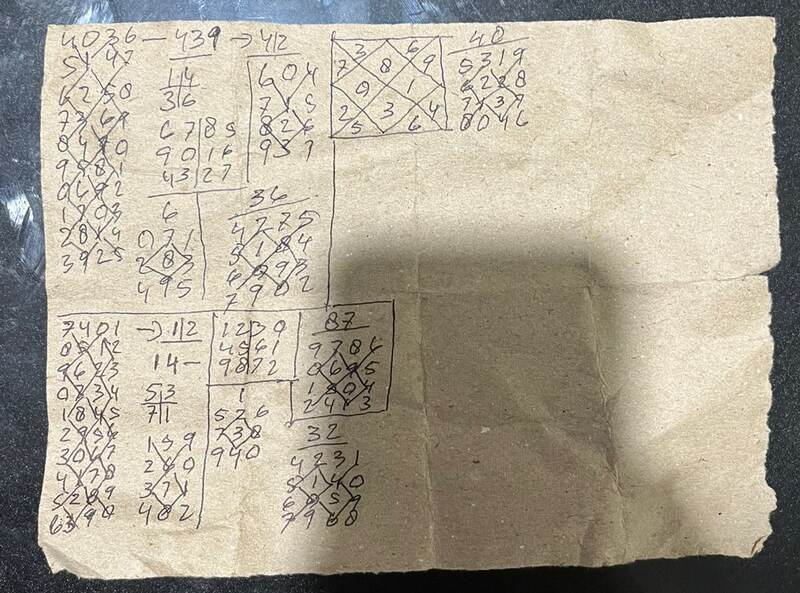 4036 – 439 → 412
5147
6258
7369
8470
9581
0692
1703
2814
3925
14
36
67 85
90 16
43 27
604
715
826
937
3 6
7 8 9
0 1
2 3 4
5 6
40
5319
6228
7137
8046
6
071
283
495
36
4275
5184
6093
7902
7401 → 12
8512
9623
0734
1845
2956
3067
4178
5289
6390
14–
53
71
159
260
371
482
1239
4561
9872
1
526
738
940
87
9786
0695
1504
2413
32
4231
5140
6059
7968